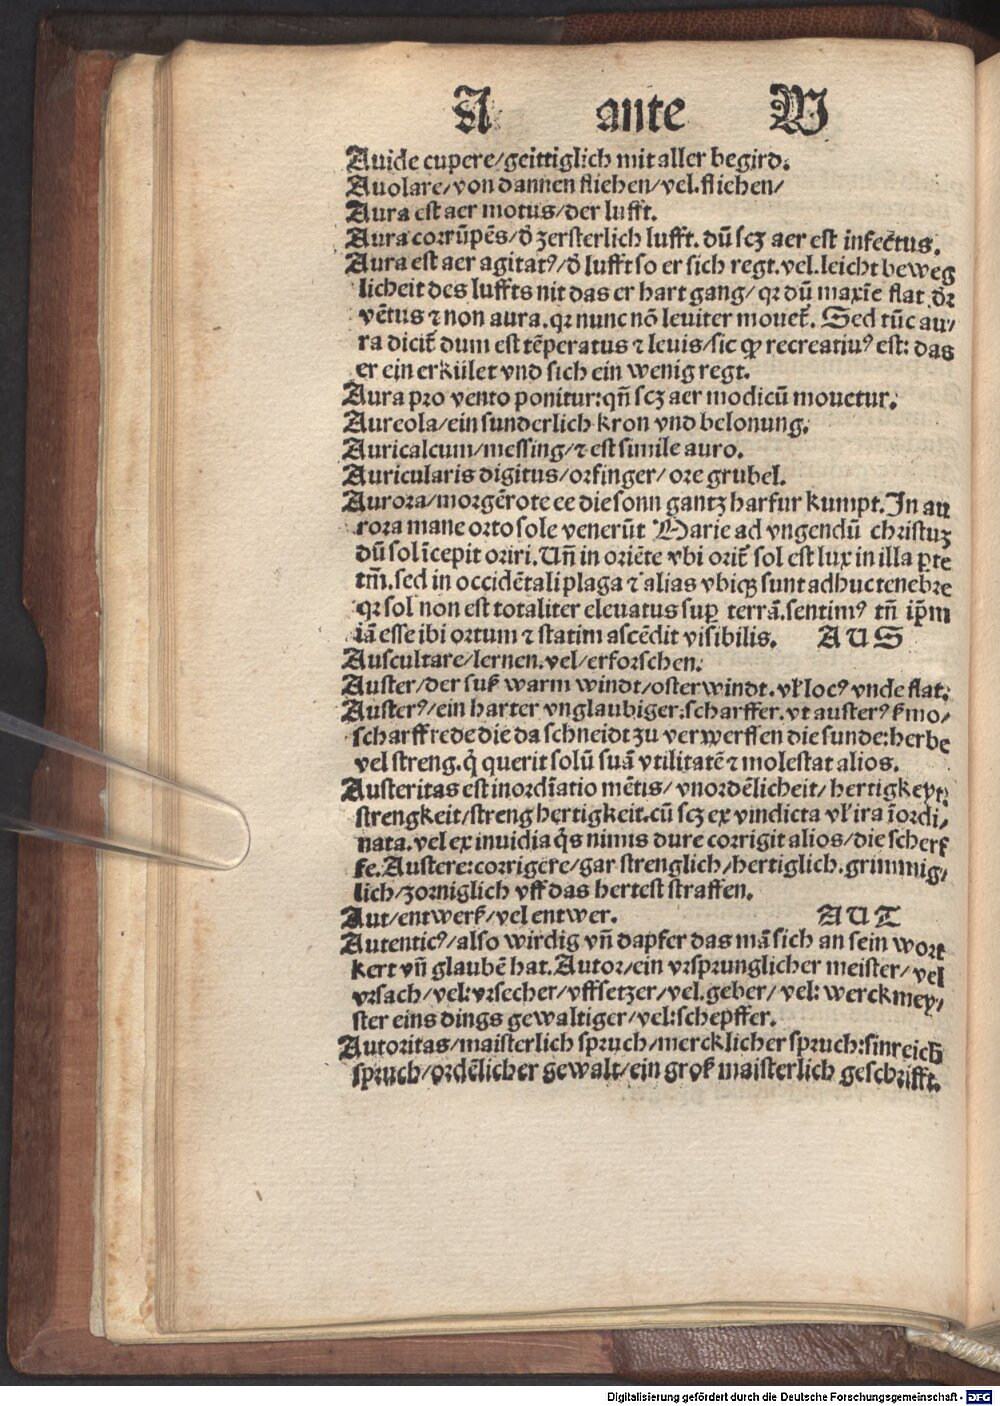 A ante W
Auide cupere/geittiglich mit aller begird.
Auolare/von dannen fliehen/vel.fliehen/
Aura est aer motus/der lufft.
Aura corrūpēs/d̄ zersterlich lufft. dū scꝫ aer est infectus.
Aura est aer agitatꝰ/d̄ lufft so er sich regt.vel.leicht beweg
licheit des luffts nit das er hart gang/qꝛ dū maxīe flat dr̄
vētus ⁊ non aura.qꝛ nunc nō leuiter mouet̄. Sed tūc au/
ra dicit̄ dum est tēperatus ⁊ leuis/sic ꝙ recreatiuꝰ est: das
er ein erkület vnd sich ein wenig regt.
Aura pro vento ponitur:qn̄ scꝫ aer modicū mouetur.
Aureola/ein sunderlich kron vnd belonung.
Auricalcum/messing/⁊ est simile auro.
Auricularis digitus/orfinger/ore grubel.
Aurora/morgērote ee die sonn gantz harfur kumpt.In au
rora mane orto sole venerūt Marie ad vngendū christuꝫ
dū sol īcepit oriri.Un̄ in oriēte vbi orit̄ sol est lux in illa ꝑte
tm̄.sed in occidētali plaga ⁊ alias vbiqꝫ sunt adhuc tenebre
qꝛ sol non est totaliter eleuatus suꝑ terrā.sentimꝰ tn̄ ip̄m
iā esse ibi ortum ⁊ statim ascēdit visibilis. AUS
Auscultare/lernen.vel/erforschen.
Auster/der suß warm windt/osterwindt.vł locꝰ vnde flat.
Austerꝰ/ein harter vnglaubiger:scharffer.vt austerꝰ ßmo/
scharff rede die da schneidt zu verwerffen die sunde:herbe
vel streng.q̇ querit solū suā vtilitatē ⁊ molestat alios.
Austeritas est inordīatio mētis/vnordēlicheit/hertigkeyt:
strengkeit/streng hertigkeit.cū scꝫ ex vindicta vł ira īordi/
nata.vel ex inuidia q̇s nimis dure corrigit alios/die scherf
fe.Austere:corrigere/gar strenglich/hertiglich.grimmig/
lich/zorniglich vff das hertest straffen.
Aut/entwerß/vel entwer. AUT
Autenticꝰ/also wirdig vn̄ dapfer das mā sich an sein wort
kert vn̄ glaubē hat.Autor/ein vrsprunglicher meister/vel
vrsach/vel:vrsecher/vffsetzer/vel.geber/vel:werckmey/
ster eins dings gewaltiger/vel:schepffer.
Autoritas/maisterlich spruch/mercklicher spruch:sinreich
spruch/ordēlicher gewalt/ein groß maisterlich geschrifft.
Digitalisierung gefördert durch die Deutsche Forschungsgemeinschaft - DFG